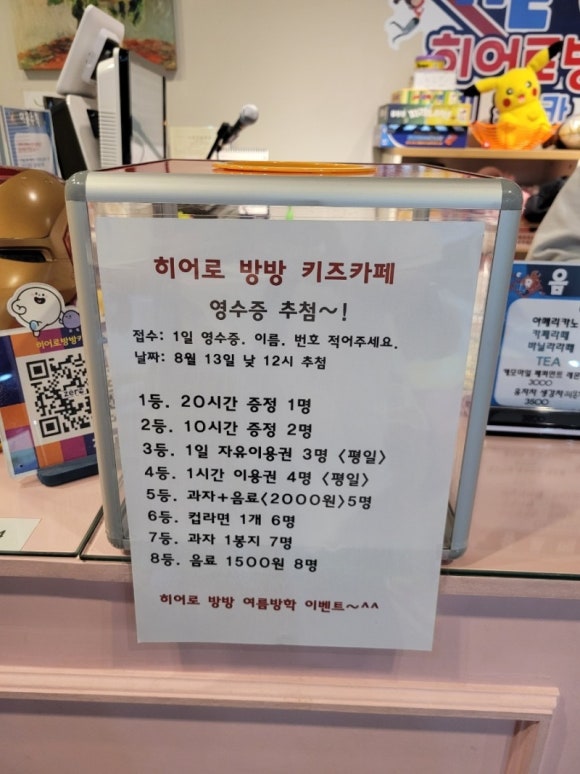 히어로 방
히어로 방방 키즈카페
영수증 추첨~!
접수: 1일 영수증. 이름. 번호 적어주세요.
날짜: 8월 13일 낮 12시 추첨
1등. 20시간 증정 1명
2등. 10시간 증정 2명
3등. 1일 자유이용권 3명 <평일>
4등. 1시간 이용권 4명 <평일>
5등. 과자+음료<2000원>5명
6등. 컵라면 1개 6명
7등. 과자 1봉지 7명
8등. 음료 1500원 8명
히어로 방방 여름방학 이벤트~^^
히어로방방키
zero
음
아메리카노
카페라떼
바닐라라떼
TEA
3000
3500